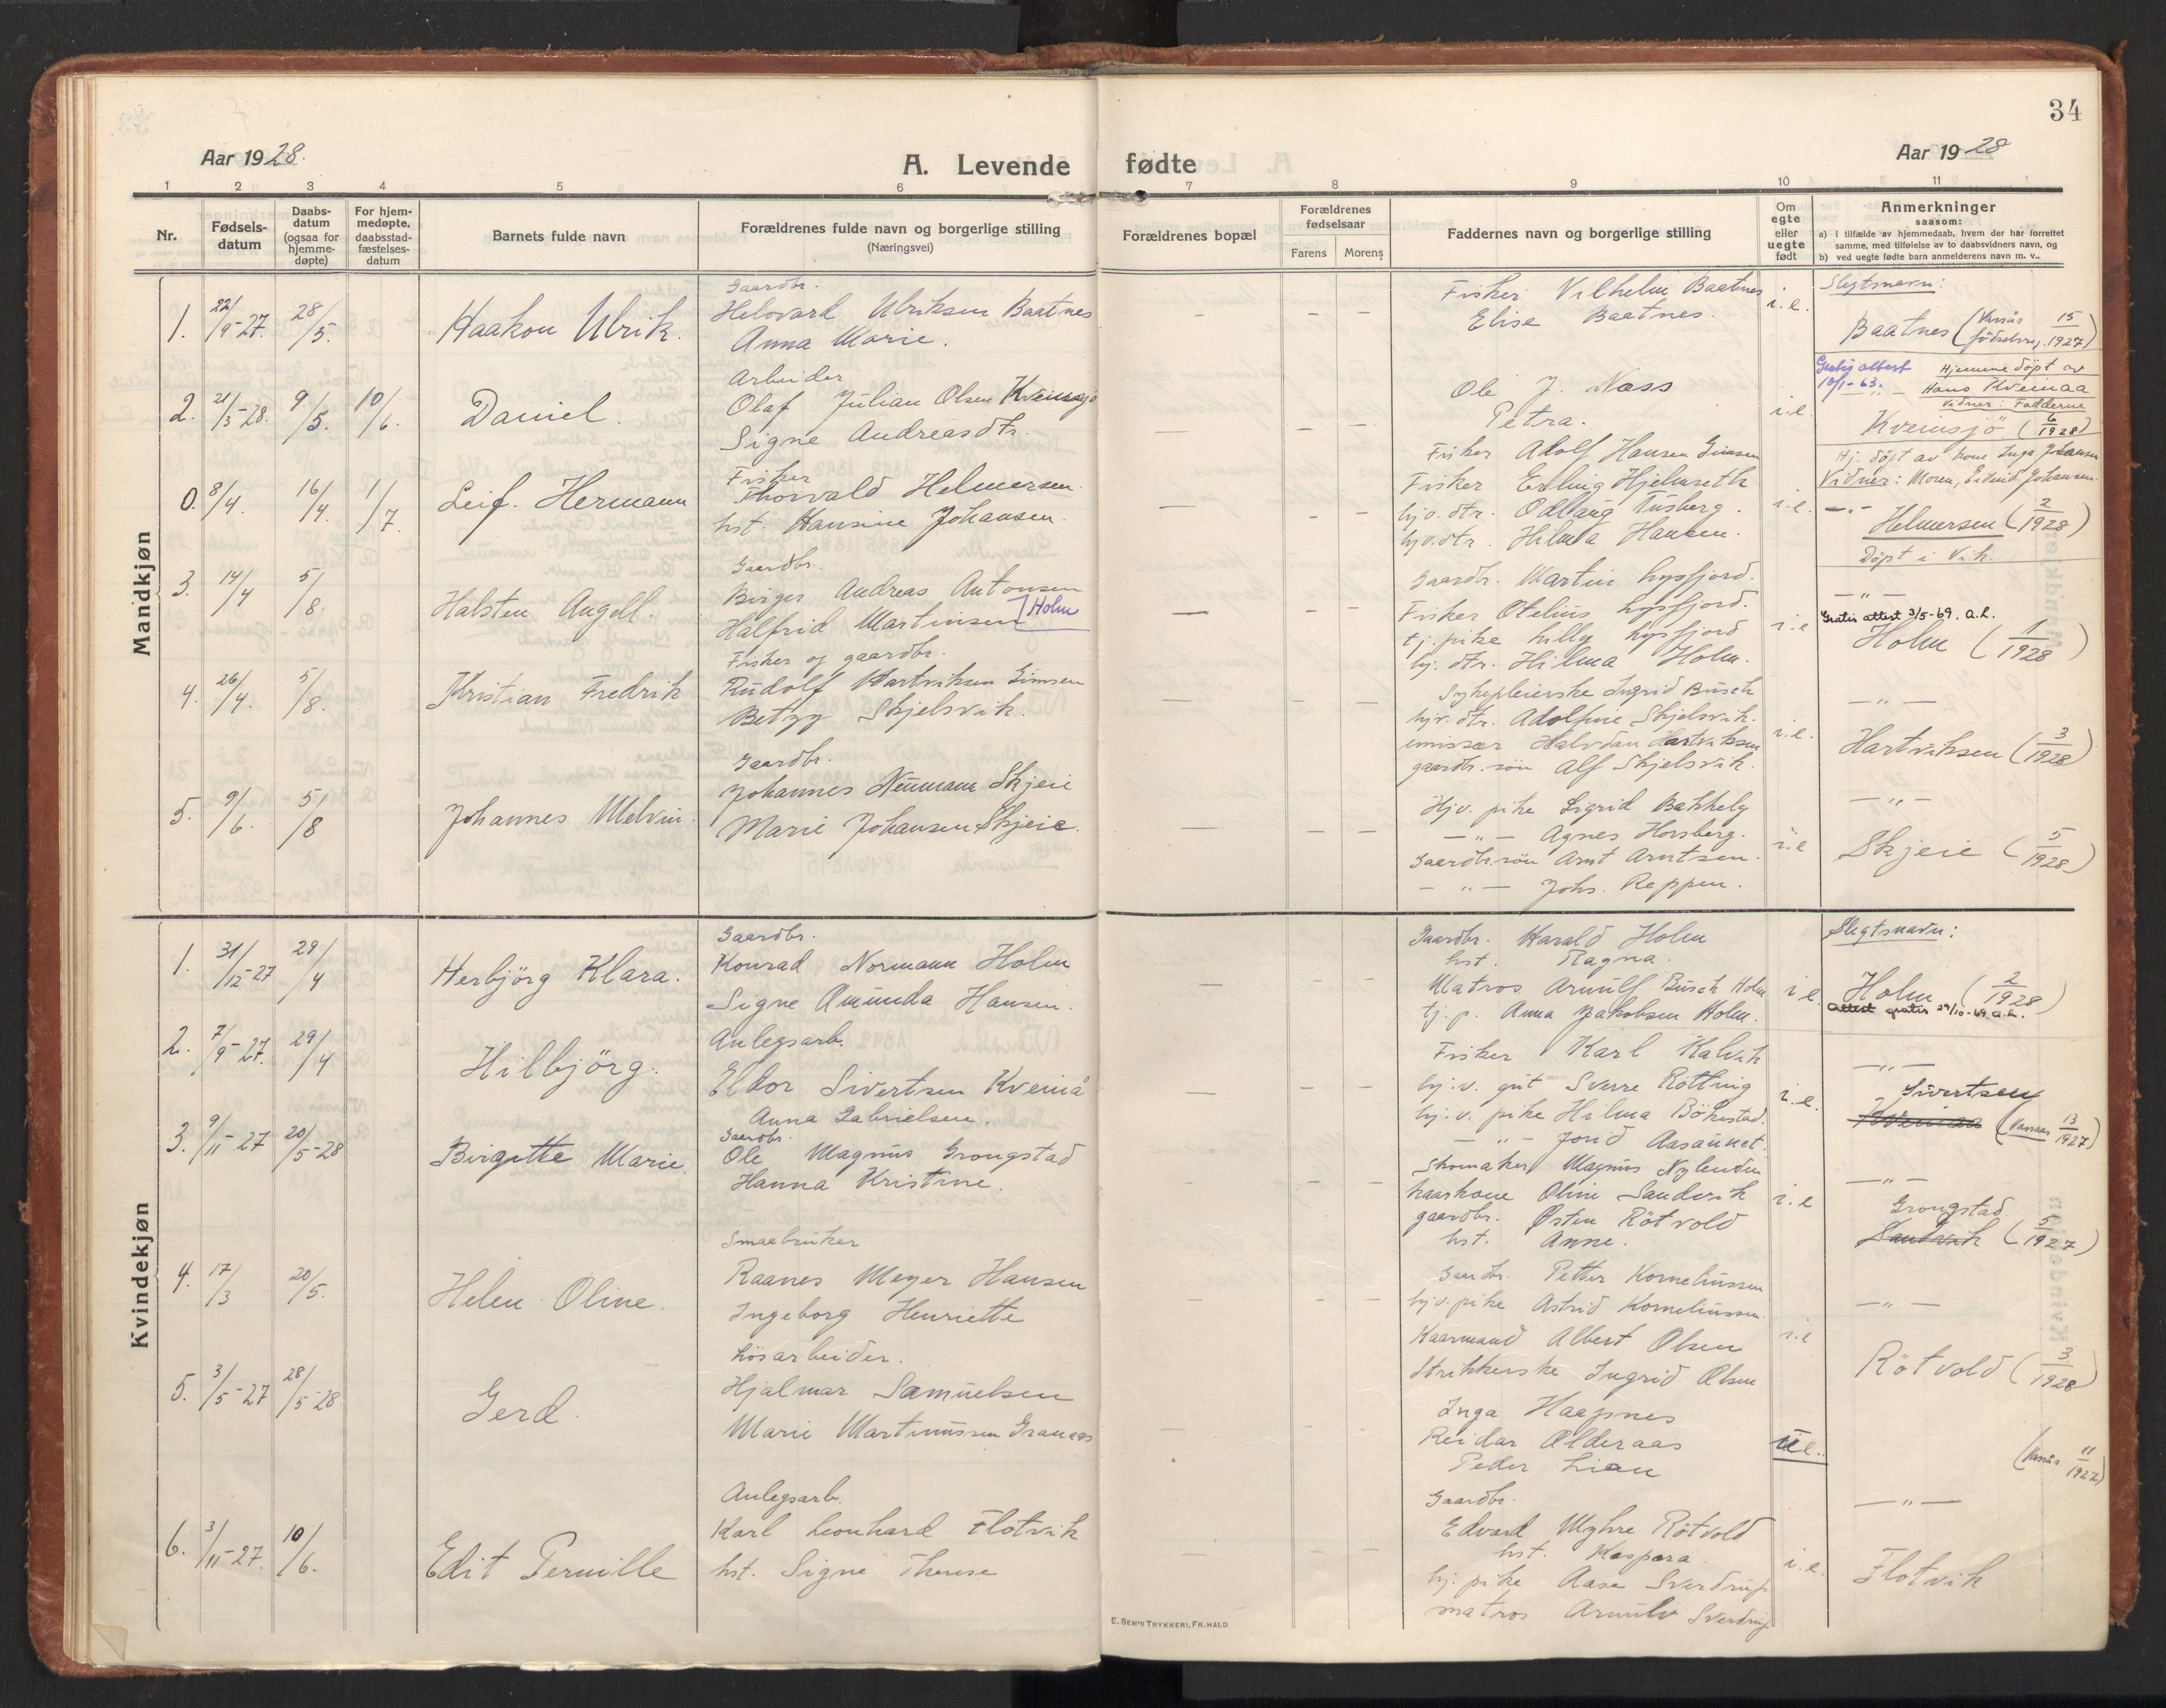 34
Aar 1928.
A. Levende fødte
Aar 1928
1 2 3 4 5 6 7 8 9 10 11
Nr.
Fødsels-
datum
Daabs-
datum
(ogsaa for
hjemme-
døpte)
For hjem-
medøpte,
daabsstad-
fæstelses-
datum
Barnets fulde navn
Forældrenes fulde navn og borgerlige stilling
(Næringsvei)
Forældrenes bopæl
Forældrenes
fødselsaar
Farens Morens
Faddernes navn og borgerlige stilling
Om
egte
eller
uegte
født
Anmerkninger
saasom:
a) i tilfælde av hjemmedaab, hvem der har forrettet
samme, med tilføielse av to daabsvidners navn, og
b) ved uegte fødte barn anmelderens navn m. v..
Mandkjøn
1. 22/9-27. 28/5. Haakon Ulrik.
Gaardbr.
Helovard Ulriksen Baatnes
Anna Marie.
Fisker Vilhelm Baatnes
Elise Baatnes.
i.e.
Slegtsnavn:
Baatnes (Vassås fødselsreg. 15/1927)
2. 21/3-28. 9/5. 10/6. Daniel.
Arbeider
Olaf Julian Olsen Kveinsjö
Signe Andreasdtr.
Ole J. Næss
Petra.
i.e.
10/1-63.
Hjemmedöpt av
Hans Kveinaa
Vidner: Fadderne
Kveinsjö (6/1928)
0. 8/4. 16/4. 1/7 Leif. Hermann
Fisker
Thorvald Helmersen.
hst. Hansine Johansen.
Fisker Adolf Hansen Simsen
Fisker Erling Hjelmseth
hjv. dtr. Odlaug Tusberg.
hjv. dtr. Hilma Hansen.
i.e.
Hj. döpt av kone Inga Johansen
Vidner: Moren, Eidvind Johansen.
— " — Helmersen (2/1928)
Döpt i Vik.
3. 14/4 5/8. Halsten Angell.
Gaardbr.
Birger Andreas Antonsen
Halfrid Martinsen } Holm
Gaardbr. Martin Lysfjord.
Fisker Otelius Lysfjord.
tj. pike Lilly Lysfjord
hj. dtr. Hilma Holm.
i.e
— " —
Gratis attest 3/5-69. A.L.
Holm (1/1928)
4. 26/4. 5/8. Kristian Fredrik
Fisker og gaardbr.
Rudolf Hartviksen Simsen
Betzy Skjelsvik.
Sykepleierske Ingrid Busch
hjv. dtr. Adolfine Skjelsvik.
emissær Halvdan Hartviksen
gaardbr. søn Alf Skjelsvik.
i.e.
— " —
Hartviksen (3/1928)
5. 9/6. 5/8 Johannes Melvin.
Gaardbr.
Johannes Neumann Skjeie
Marie Johansen Skjeie.
Hjv. pike Sigrid Bakkely
— " — Agnes Horsberg.
Gaardbr. søn Arnt Arntsen.
— " — Johs. Reppen.
i.e
— " —
Skjeie (5/1928)
Kvindekjøn
1. 31/12-27 29/4 Herbjörg Klara.
Gaardbr.
Konrad Normann Holm
Signe Amunda Hansen.
Gaardbr. Harald Holm
hst. Ragna.
Matros Arnulf Busch Holm
tj. p. Anna Jakobsen Holm.
i.e.
Slegtsnavn:
Holm (2/1928)
Attest gratis 29/10-69 A.L.
2. 7/9-27. 29/4 Hilbjörg.
Anlegsarb.
Eldor Sivertsen Kveinå
Anna Gabrielsen.
Fisker Karl Kalvik
hj. v. gut Sverre Røtting
hj. v. pike Hilma Bökestad.
— " — Jorid Aasaunet.
i.e.
— " —
Sivertsen
Kveinaa (Vassaas 13/1927)
3. 9/11-27 20/5-28 Birgitte Marie.
Gaardbr.
Ole Magnus Grongstad
Hanna Kristine.
Skomaker Magnus Nylenden
kaarkone Oline Sandvik
gaardbr. Østen Rötvold
hst. Anne.
i.e
— " —
Grongstad
Sandvik (5/1927)
4. 17/3 20/5. Helen Oline.
Smaabruker
Raanes Meyer Hansen
Ingeborg Henriette
Gaardbr. Petter Korneliussen
hjv. pike Astrid Korneliussen.
Kaarmand Albert Olsen
Strikkerske Ingrid Olsen
i.e
— " —
Rötvold (3/1928)
5. 3/5-27 28/5-28 Gerd.
Lösarbeider.
Hjalmar Samuelsen
Marie Martinussen Granaas
Inga Haagnes
Reidar Olderaas
Peder Lian
u.e.
(Vassås 11/1927)
6. 3/11-27. 10/6. Edit Pernille
Anlegsarb.
Karl Leonhard Flotvik
hst. Signe Therese
Gaardbr.
Edvard Myhre Rötvold
hst. Kaspara.
hj. pike Aase Sverdrup
matros Arnulv Sverdrup
i.e.
— " —
Flotvik
E. SEM'S TRYKKERI, FR.HALD